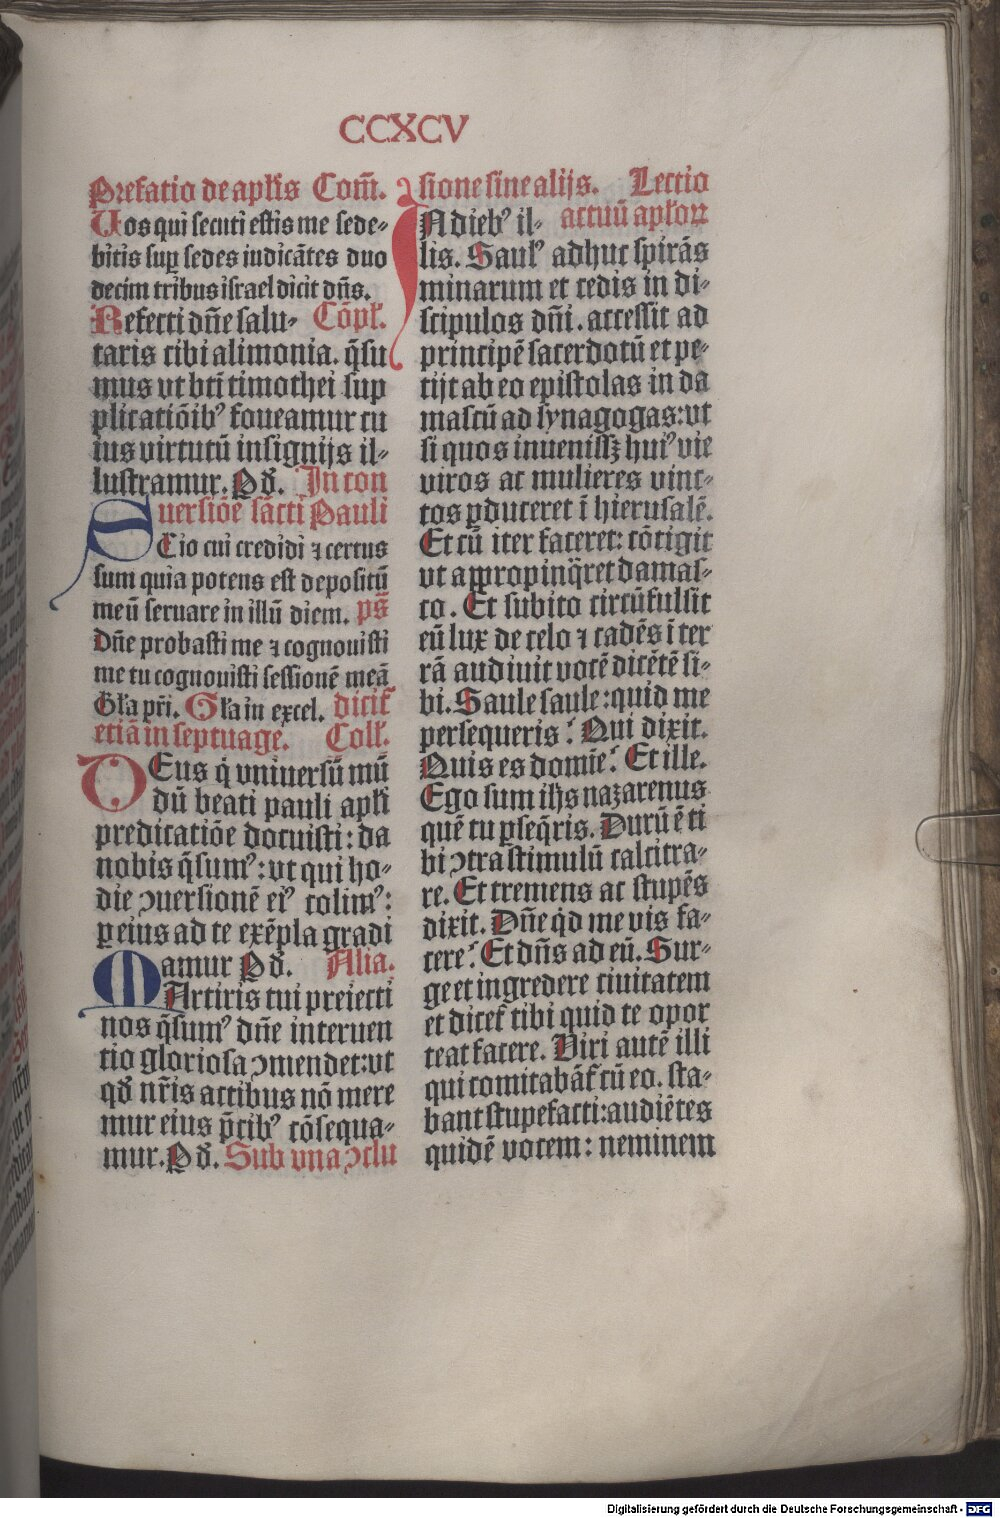 CCXCV
Prefatio de apl'is Com̄.
Uos qui secuti estis me sede-
bitis sup̱ sedes iudicātes duo
decim tribus israel dicit dn̄s.
Refecti dn̄e salu- Cōpl'.
taris cibi alimonia. q̄su
mus vt bt̄i timothei sup
plicatiōibꝰ foueamur cu
ius virtutū insignijs il-
lustramur. P d̄. In con
uersiōe sācti Pauli
SCio cui credidi ⁊ certus
sum quia potens est depositū
meū seruare in illū diem. ps̄
Dn̄e probasti me ⁊ cognouisti
me tu cognouisti sessionē meā
Gl'a pr̄i. Gl'a in excel. dicit᷑
etiā in septuage. Coll'.
DEus q̇ vniuersū mū
dū beati pauli apl'i
predicatiōe docuisti: da
nobis q̄sumꝰ: vt qui ho-
die ꝯuersionē eiꝰ colimꝰ:
ꝑ eius ad te exēpla gradi
amur P d̄. Alia.
MArtiris tui preiecti
nos q̄sumꝰ dn̄e interuen
tio gloriosa ꝯmendet: vt
qd̄ nr̄is actibus nō mere
mur eius p̄cibꝰ cōsequa-
mur. P d̄. Sub vna ꝯclu
sione sine alijs. Lectio
IN diebꝰ il- actuū apl'oꝝ
lis. Saulꝰ adhuc spirās
minarum et cedis in di-
scipulos dn̄i. accessit ad
principē sacerdotū et pe-
tijt ab eo epistolas in da
mascū ad synagogas: vt
si quos inuenissꝫ huiꝰ vie
viros ac mulieres vinc-
tos ꝑduceret ī hierusalē.
Et cū iter faceret: cōtigit
vt appropinq̄ret damas-
co. Et subito circūfulsit
eū lux de celo ⁊ cadēs ī ter
rā audiuit vocē dicētē si-
bi. Saule saule: quid me
persequeris? Qui dixit.
Quis es domīe? Et ille.
Ego sum ih̄s nazarenus
quē tu ꝑseq̄ris. Durū ē ti
bi ꝯtra stimulū calcitra-
re. Et tremens ac stupēs
dixit. Dn̄e qḋ me vis fa-
cere? Et dn̄s ad eū. Sur-
ge et ingredere ciuitatem
et dicet᷑ tibi quid te opor
teat facere. Viri autē illi
qui comitabāt᷑ cū eo. sta-
bant stupefacti: audiētes
quidē vocem: neminem
Digitalisierung gefördert durch die Deutsche Forschungsgemeinschaft - DFG